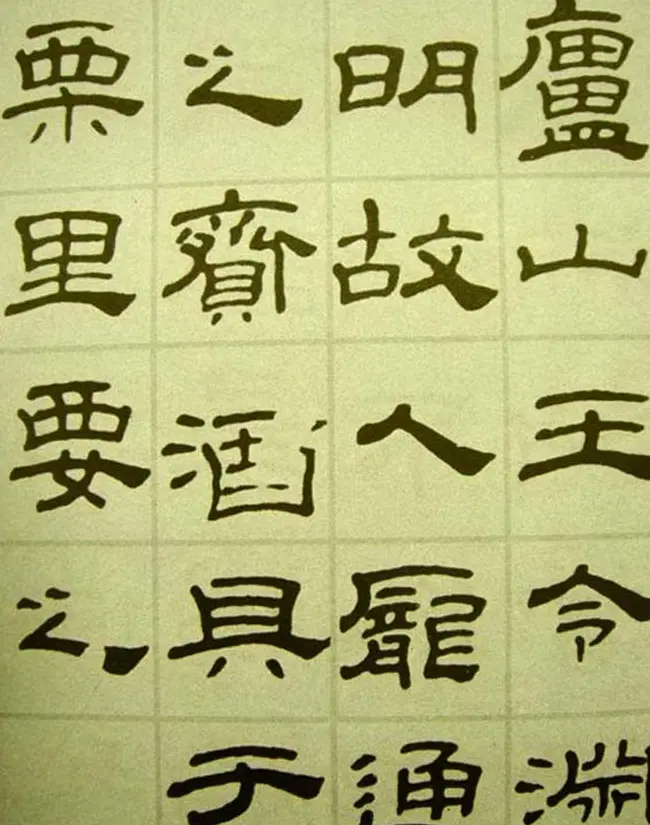 廬山王令淵
明故人龐通
之齎酒具于
栗里要之